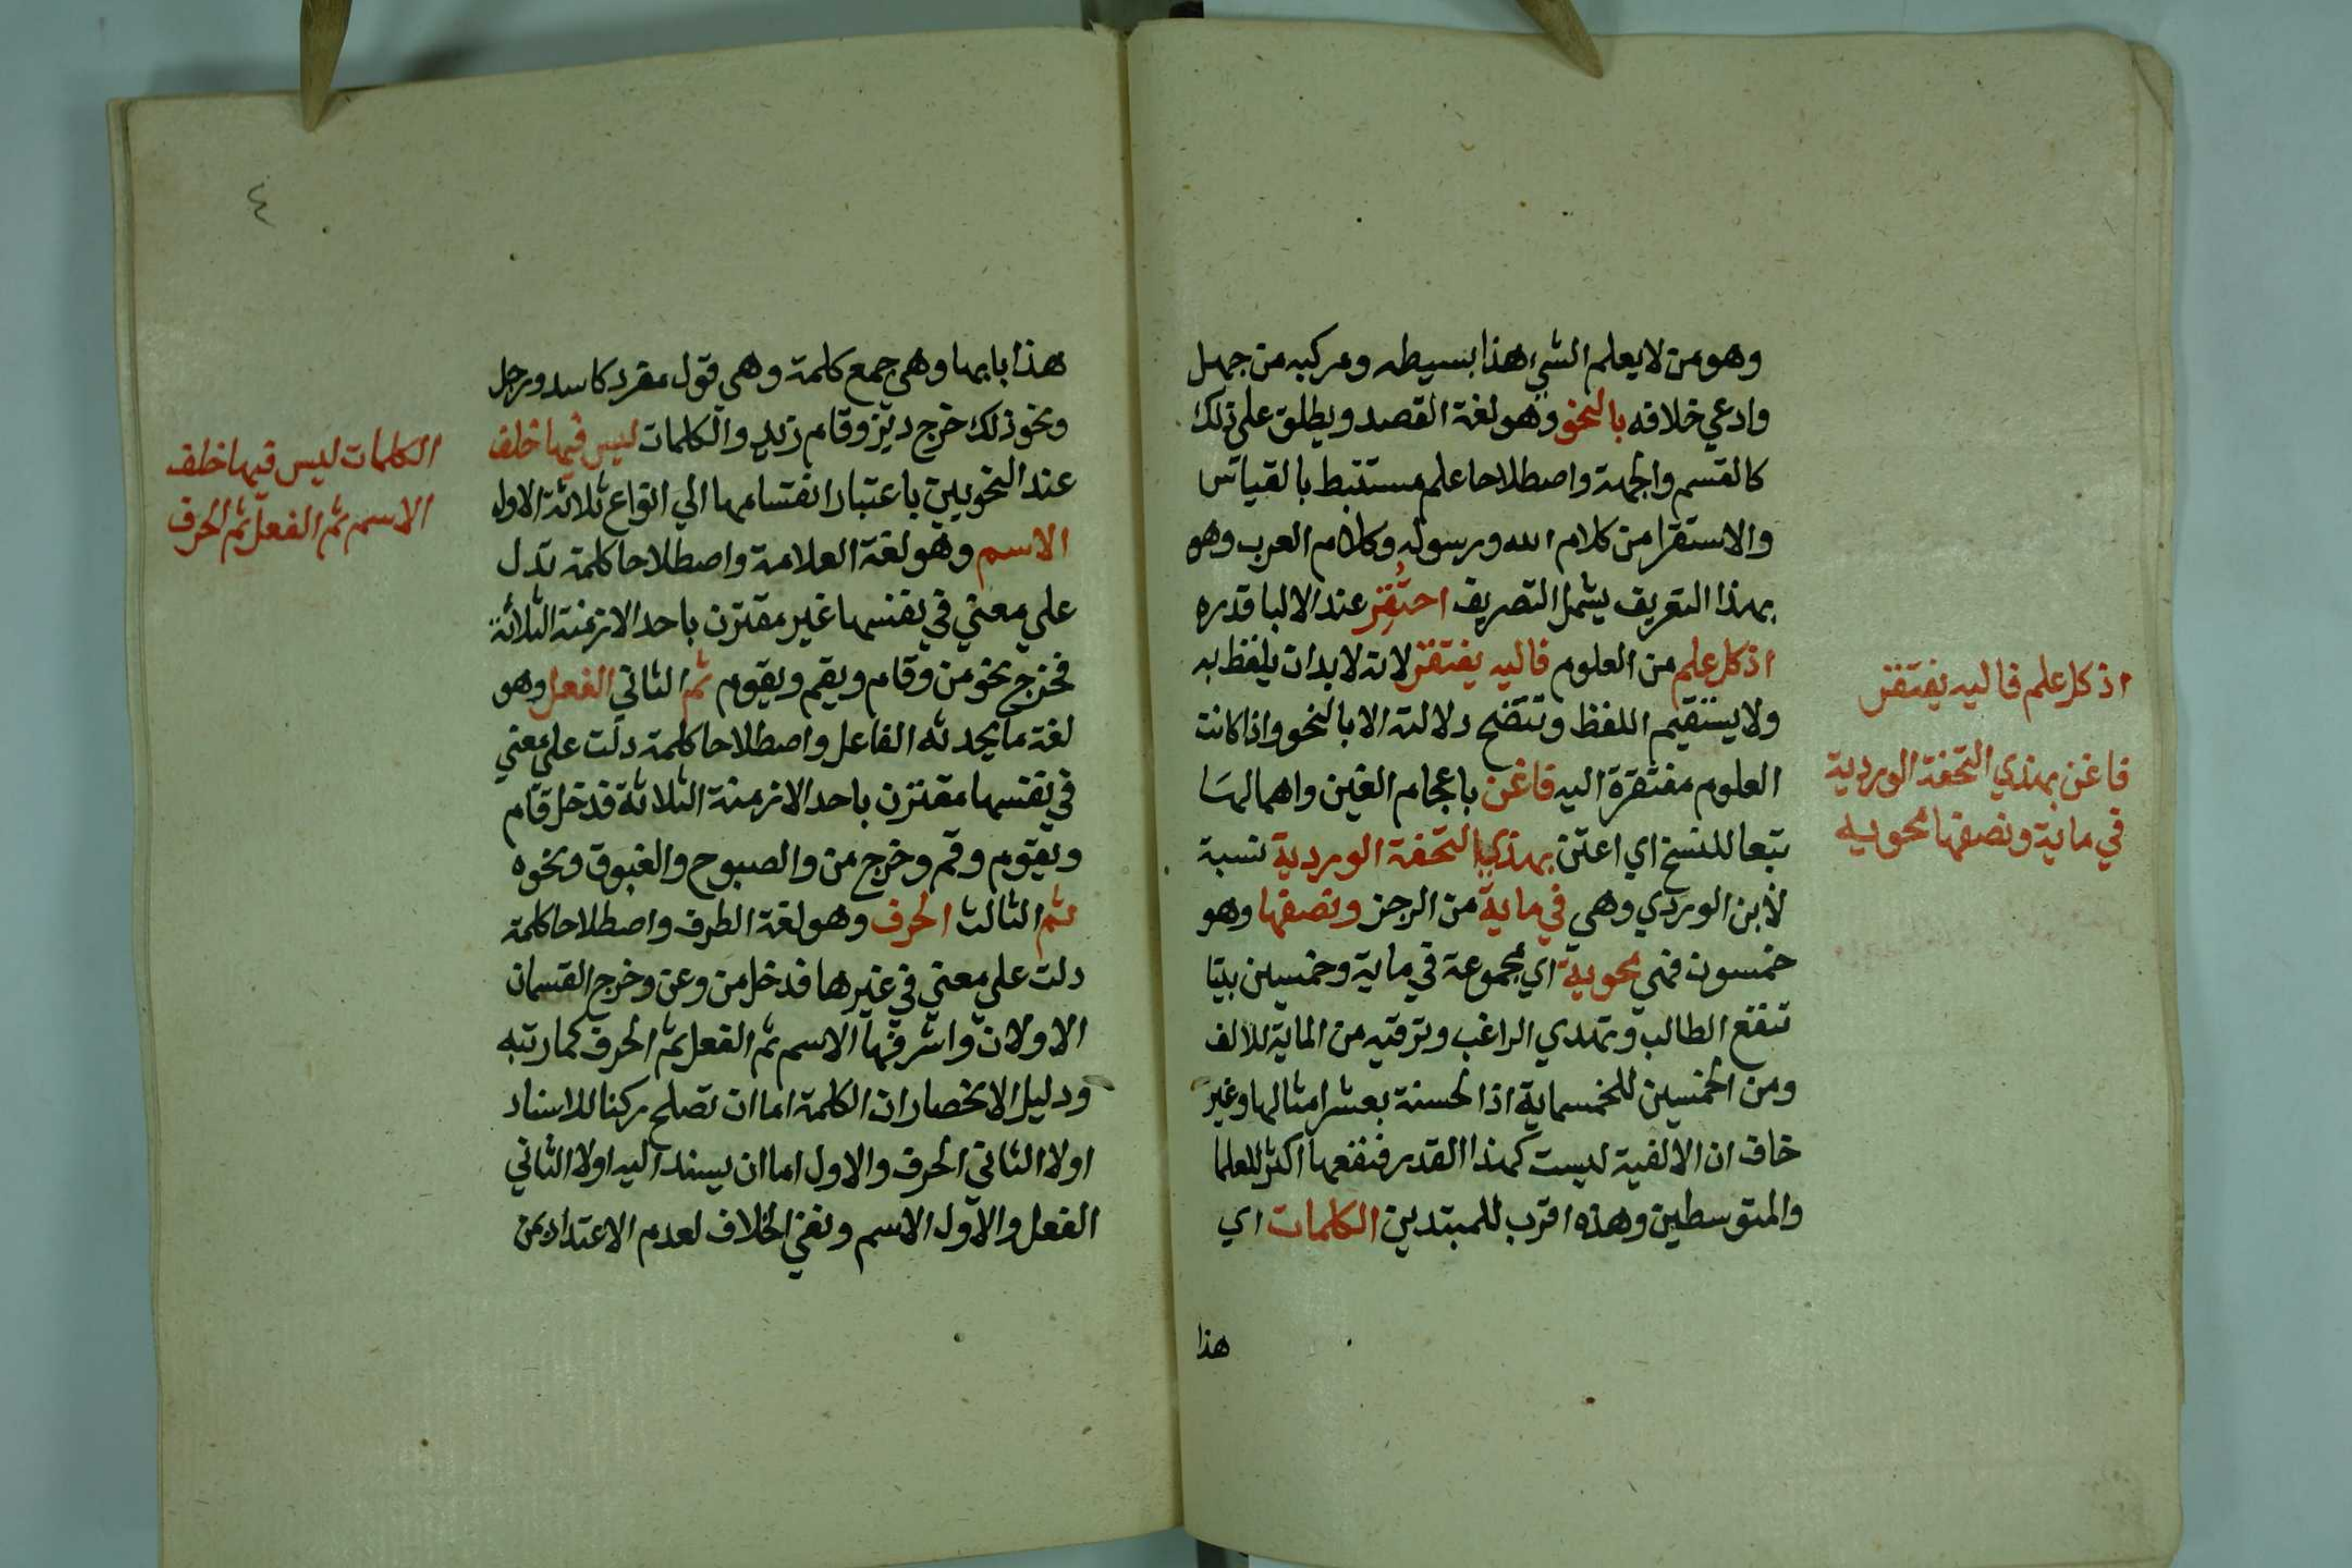 وهو من لا يعلم الشيء هذا بسيطه ومركبه من جهل
وادعي خلافه بالنحو وهو لغة القصد ويطلق علي ذلك
كالقسم والجهة واصطلاحا علم مستنبط بالقياس
والاستقرا من كلام الله ورسوله وكلام العرب وهو
بهذا التعريف يشمل التصريف احتقر عند الالبا قدره
اذ كل علم من العلوم فاليه يفتقر لانه لا بد ان يلفظ به
ولا يستقيم اللفظ وتتضح دلالته الا بالنحو واذا كانت
العلوم مفتقرة اليه فاغن باعجام الغين واهمالها
تبعا للنسخ اي اعتن بهذي التحفة الوردية نسبة
لابن الوردي وهي في ماية من الرجز ونصفها وهو
خمسون فهي محوية اي مجموعة في ماية وخمسين بيتا
تنفع الطالب وتهدي الراغب وترقيه من الماية للالف
ومن الخمسين للخمسماية اذ الحسنة بعشر امثالها وغير
خاف ان الالفية ليست كهذا القدر فنفعها اكثر للعلما
والمتوسطين وهذه اقرب للمبتدين الكلمات اي
هذا
اذ كل علم فاليه يفتقر
فاغن بهذي التحفة الوردية
في ماية ونصفها محويه
٤
هذا بابها وهي جمع كلمة وهي قول مفرد كاسد ورجل
ونحو ذلك خرج ديز وقام زيد والكلمات ليس فيها خلف
عند النحويين باعتبار انقسامها الي انواع ثلاثة الاول
الاسم وهو لغة العلامة واصطلاحا كلمة تدل
علي معني في نفسها غير مقترن باحد الازمنة الثلاثة
فخرج نحو من وقام ويقم ويقوم ثم الثاني الفعل وهو
لغة ما يحدثه الفاعل واصطلاحا كلمة دلت علي معني
في نفسها مقترن باحد الازمنة الثلاثة فدخل قام
ويقوم وقم وخرج من والصبوح والغبوق ونحوه
ثم الثالث الحرف وهو لغة الطرف واصطلاحا كلمة
دلت علي معني في غيرها فدخل من وعن وخرج القسمان
الاولان واشرفها الاسم ثم الفعل ثم الحرف كما رتبه
ودليل الانحصار ان الكلمة اما ان تصلح ركنا للاسناد
اولا الثاني الحرف والاول اما ان يسند اليه اولا الثاني
الفعل والاول الاسم ونفي الخلاف لعدم الاعتداد بمن
الكلمات ليس فيها خلف
الاسم ثم الفعل ثم الحرف